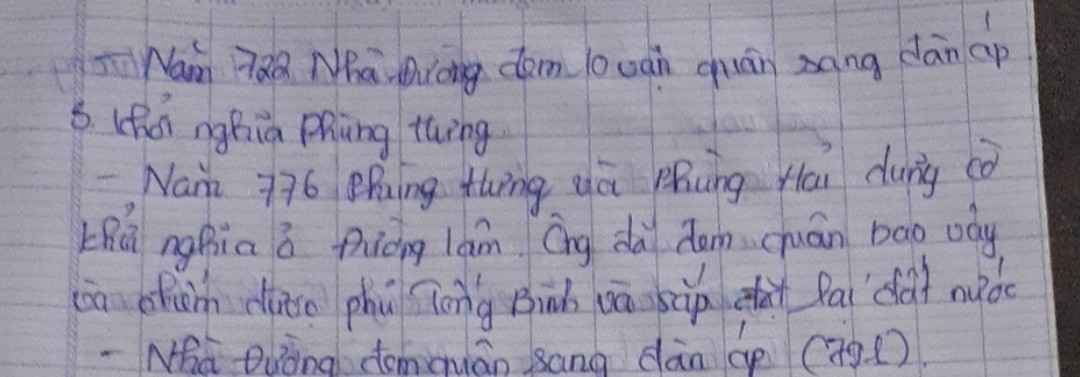 - Năm 722 Nhà Đường đem 10 vạn quân sang đàn áp
5. Khởi nghĩa Phùng Hưng
- Năm 776 Phùng Hưng và Phùng Hải dựng cờ
khởi nghĩa ở Đường Lâm. Ông đã đem quân bao vây
và chiếm được phủ Tống Bình và sắp đặt lại đất nước
- Nhà Đường đem quân sang đàn áp (791).